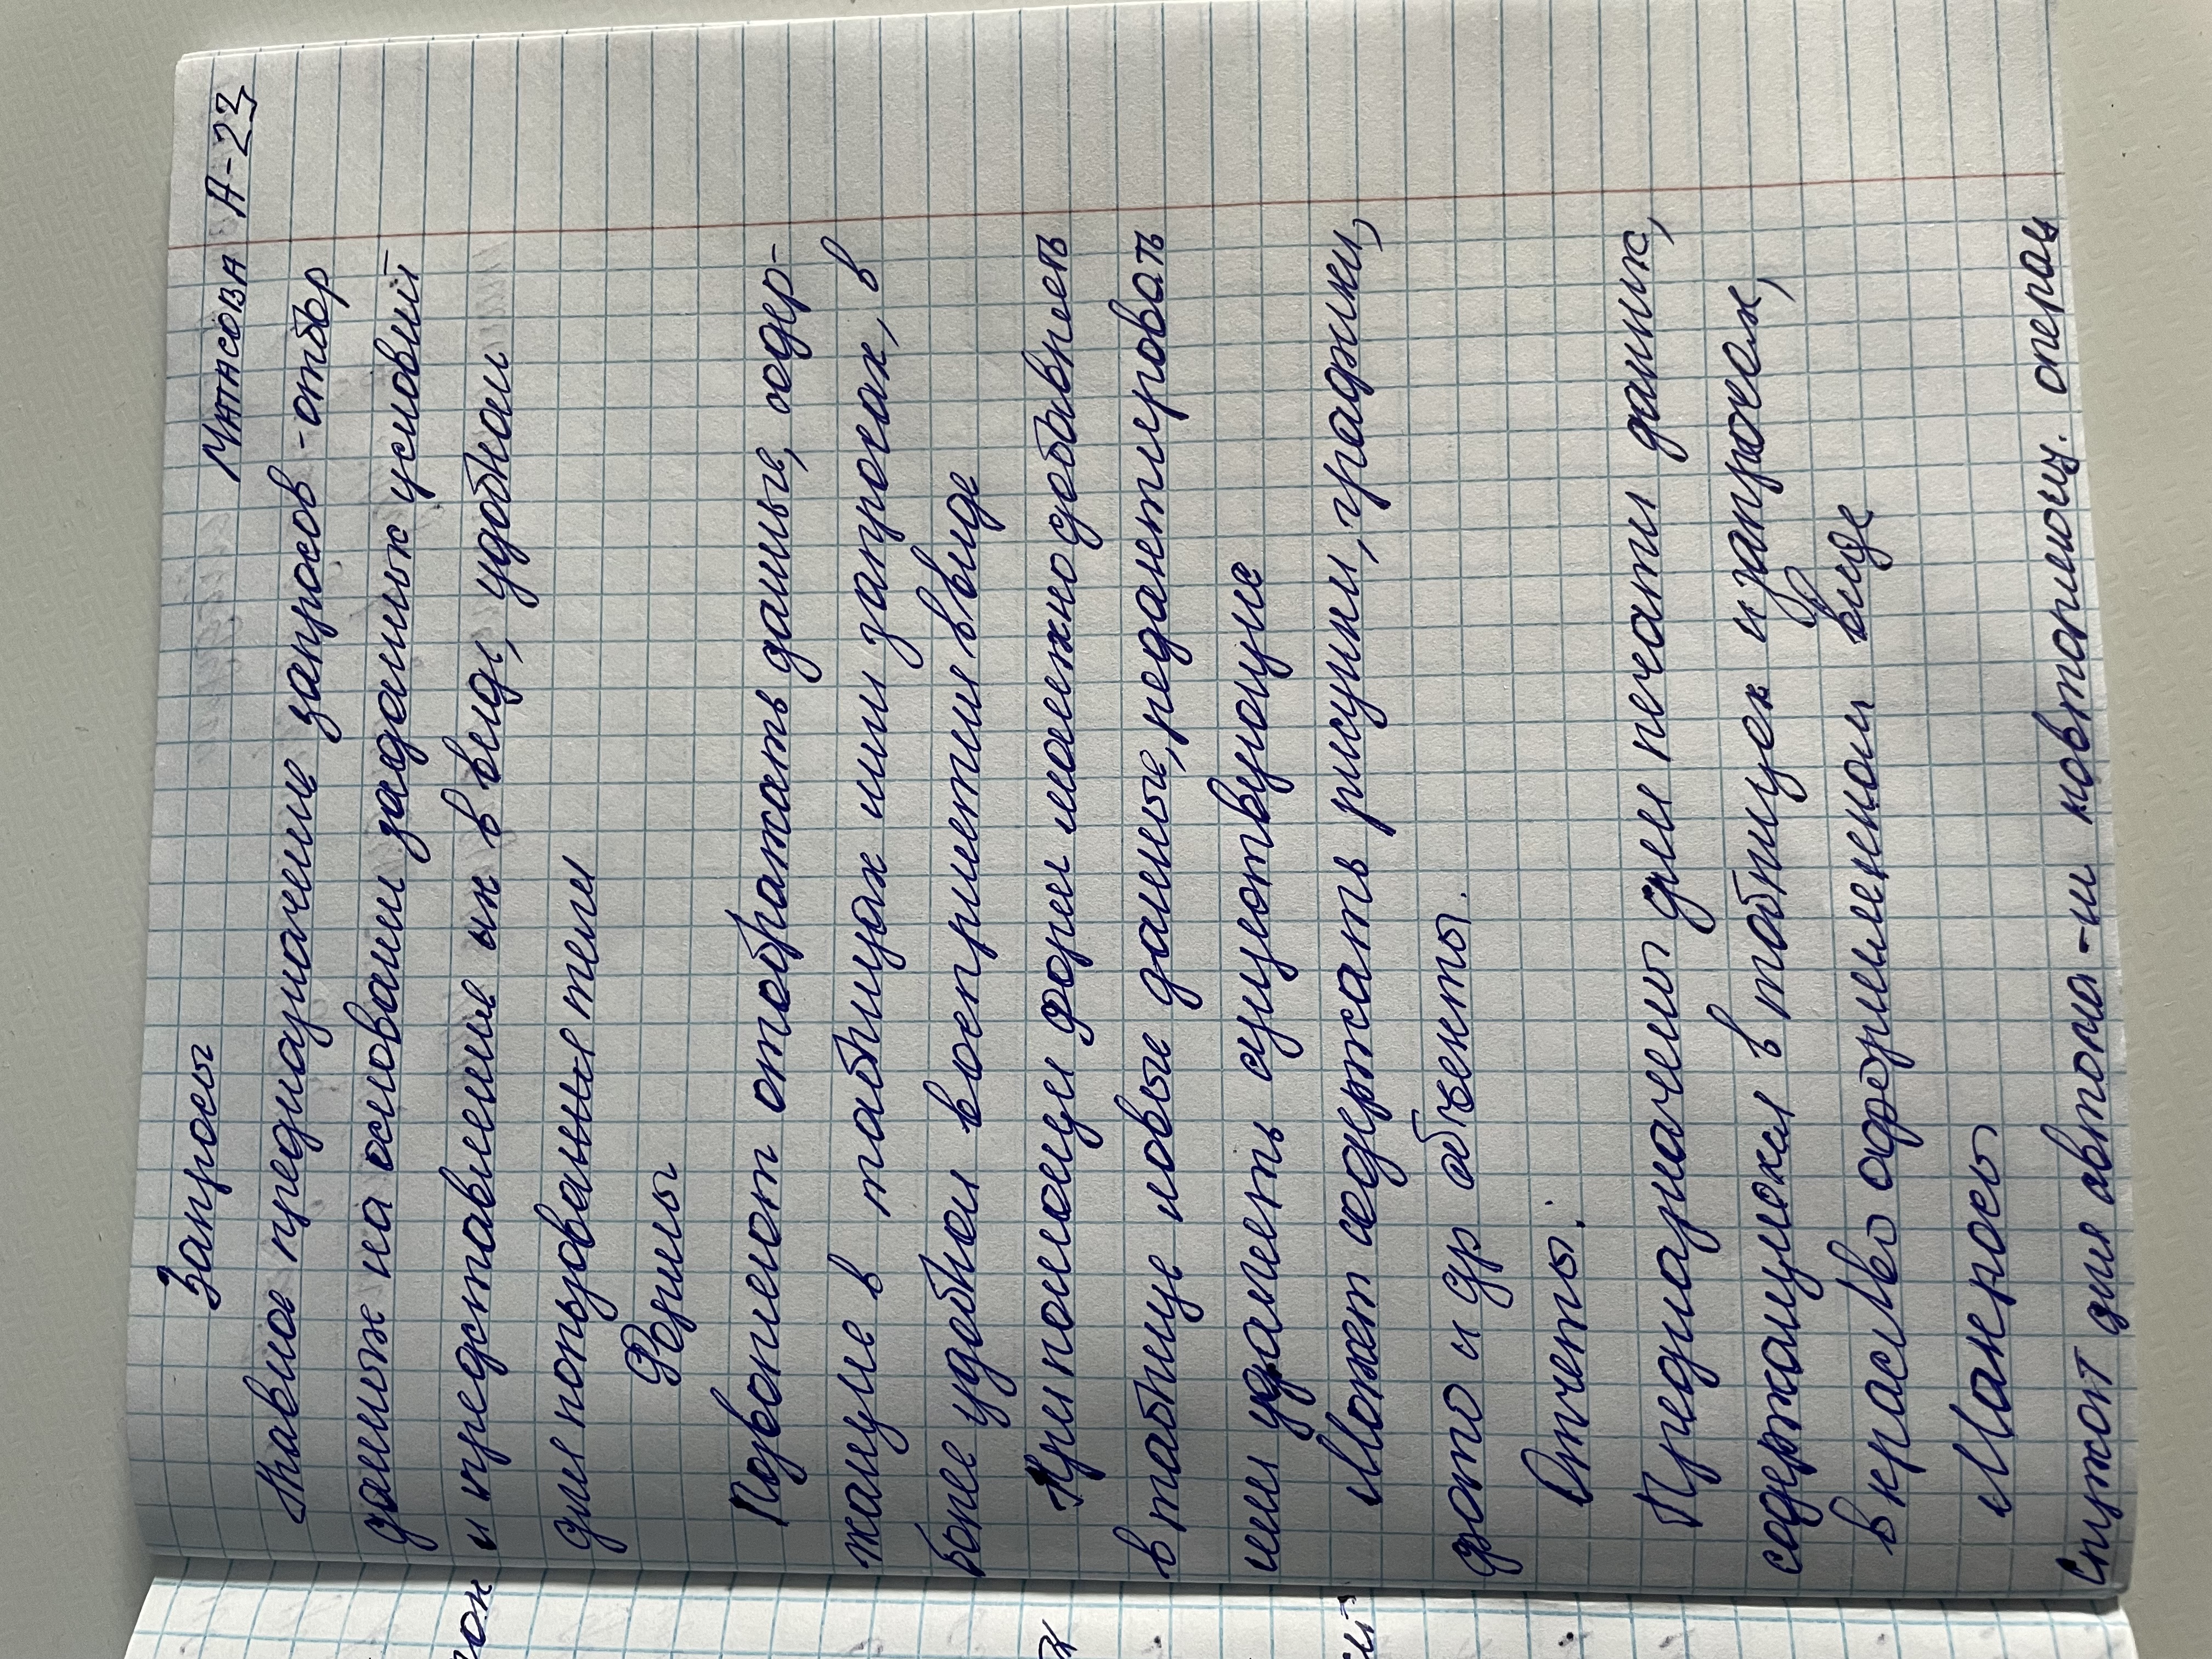 Матасова А-23
Запросы
Главное предназначение запросов - отбор
данных на основании заданных условий
и представление их в виде, удобном
для пользователя
Формы
Позволяют отображать данные, содер-
жащие в таблицах или запросах, в
более удобном восприятия виде
При помощи форм можно добавлять
в таблице новые данные, редактировать
или удалять существующие
Может содержать рисунки, графики,
фото и др объекты.
Отчеты.
Предназначены для печати данных,
содержащихся в таблицах и запросах,
в красиво оформленном виде
Макросы
Служат для автома-и повторяющ. операц